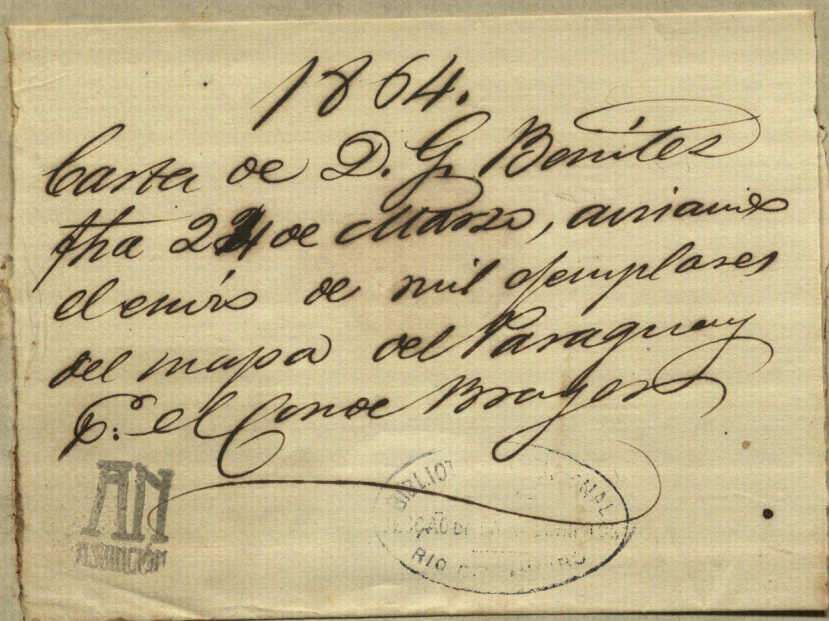 1864.
Carta de D. G. Benites
fha 24 de Marzo, avisando
el envio de mil ejemplares
del mapa del Paraguay
p.r el Conde Brayer
AN
ASUNCIÓN
BIBLIOT NAL
RIO